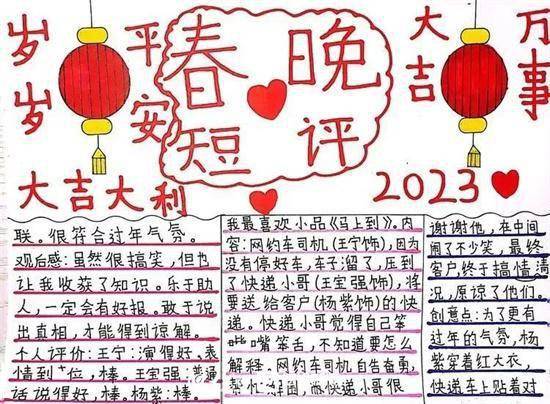 岁岁平安
春晚短评
大吉
万事
大吉大利
2023
联。很符合过年气氛。
观后感：虽然很搞笑，但也
让我收获了知识。乐于助
人，一定会有好报。敢于说
出真相，才能得到谅解。
个人评价：王宁：演得好。表
情到位，棒。王宝强：普通
话说得好，棒。杨紫：棒。
我最喜欢小品《马上到》。内
容：网约车司机（王宁饰），因为
没有停好车，车子溜了，压到
了快递小哥（王宝强饰），将
要送给客户（杨紫饰）的快
递。快递小哥觉得自己笨
嘴笨舌，不知道要怎么
解释。网约车司机自告奋勇，
帮忙解围，而快递小哥很
谢谢他，在中间
闹了不少笑，最终
客户，终于搞情清
况，原谅了他们。
创意点：为了更有
过年的气氛，杨
紫穿着红大衣，
快递车上贴着对